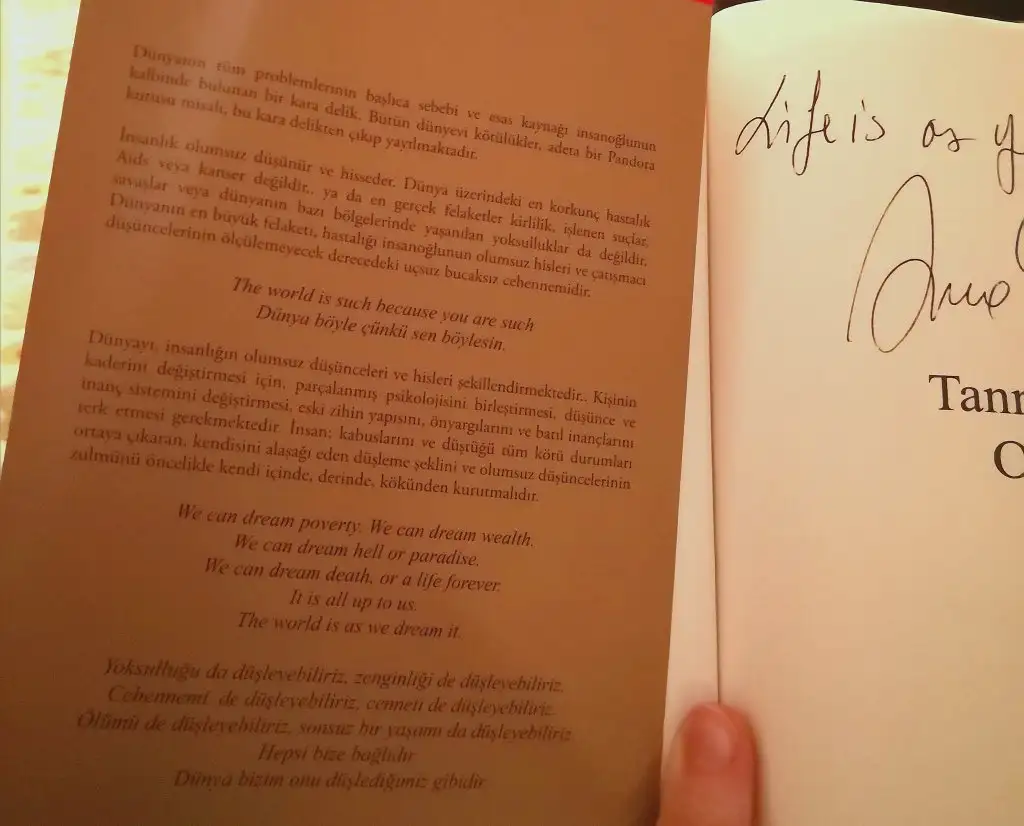 Dünyanın tüm problemlerinin başlıca sebebi ve esas kaynağı insanoğlunun
kalbinde bulunan bir kara delik. Bütün dünyevi kötülükler, adeta bir Pandora
kutusu misali, bu kara delikten çıkıp yayılmaktadır.
İnsanlık olumsuz düşünür ve hisseder. Dünya üzerindeki en korkunç hastalık
Aids veya kanser değildir.. ya da en gerçek felaketler kirlilik, işlenen suçlar,
savaşlar veya dünyanın bazı bölgelerinde yaşanılan yoksulluklar da değildir.
Dünyanın en büyük felaketi, hastalığı insanoğlunun olumsuz hisleri ve çatışmacı
düşüncelerinin ölçülemeyecek derecedeki uçsuz bucaksız cehennemidir.
The world is such because you are such
Dünya böyle çünkü sen böylesin.
Dünyayı, insanlığın olumsuz düşünceleri ve hisleri şekillendirmektedir.. Kişinin
kaderini değiştirmesi için, parçalanmış psikolojisini birleştirmesi, düşünce ve
inanç sistemini değiştirmesi, eski zihin yapısını, önyargılarını ve batıl inançlarını
terk etmesi gerekmektedir. İnsan; kabuslarını ve düştüğü tüm kötü durumları
ortaya çıkaran, kendisini alaşağı eden düşleme şeklini ve olumsuz düşüncelerinin
zulmünü öncelikle kendi içinde, derinde, kökünden kurutmalıdır.
We can dream poverty. We can dream wealth.
We can dream hell or paradise.
We can dream death, or a life forever.
It is all up to us.
The world is as we dream it.
Yoksulluğu da düşleyebiliriz, zenginliği de düşleyebiliriz.
Cehennemi de düşleyebiliriz, cenneti de düşleyebiliriz.
Ölümü de düşleyebiliriz, sonsuz bir yaşamı da düşleyebiliriz
Hepsi bize bağlıdır
Dünya bizim onu düşlediğimiz gibidir.
Life is as y
Tanr
O